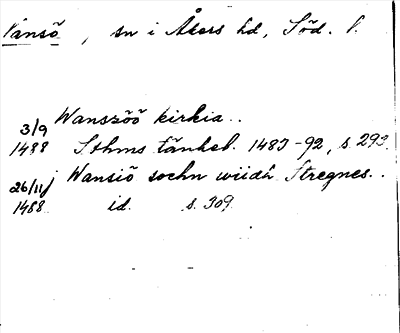 Vånsö, sn i Åkers hd, Söd. l.
Wanszöö kirkia..
3/9
1488 Sthms tänkeb. 1483-92, s. 293.
j Wansiö sochn wiidh Stregnes..
26/11
1488 id. s. 309.